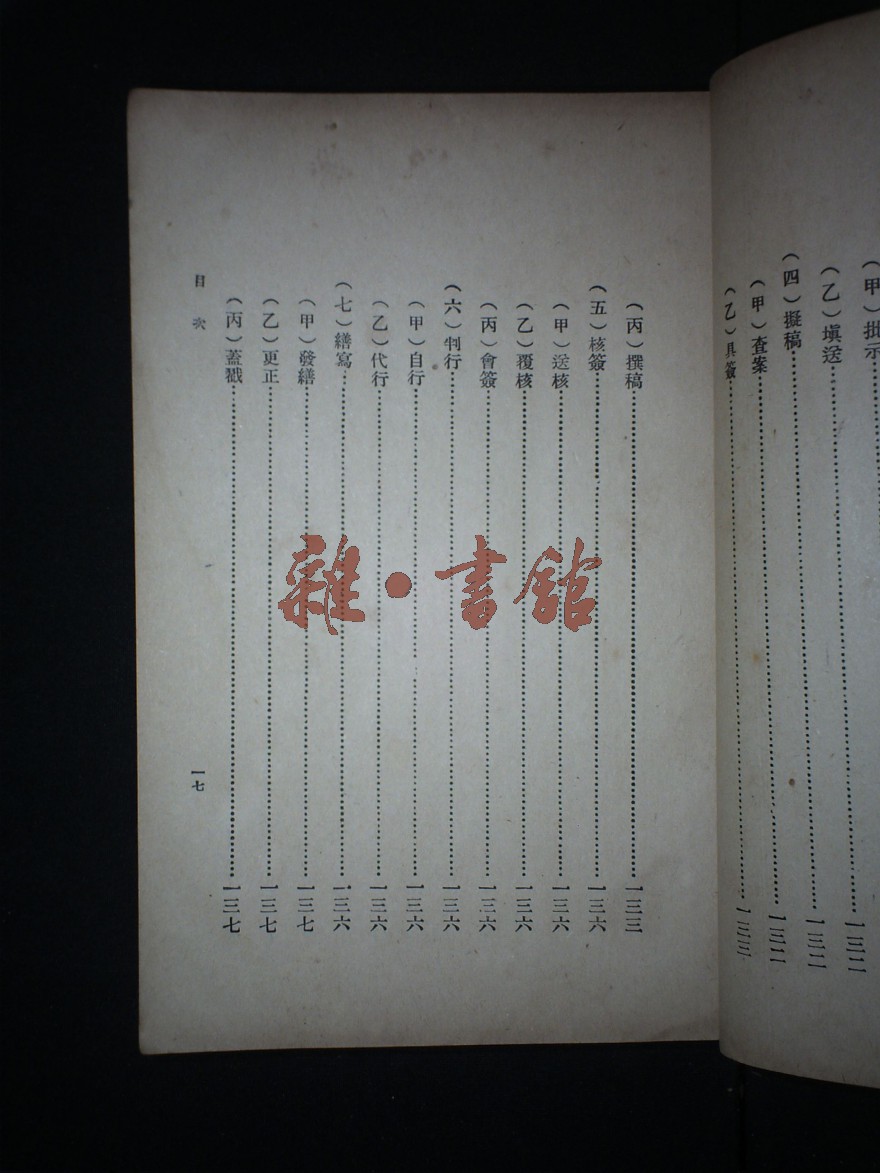 （甲）批示……一三二
（乙）塡送……一三二
（四）擬稿……一三二
（甲）查案……一三二
（乙）具簽……一三三
（丙）撰稿……一三三
（五）核簽……一三六
（甲）送核……一三六
（乙）覆核……一三六
（丙）會簽……一三六
（六）判行……一三六
（甲）自行……一三六
（乙）代行……一三六
（七）繕寫……一三六
（甲）發繕……一三七
（乙）更正……一三七
（丙）蓋戳……一三七
目次
一七
雜·書館